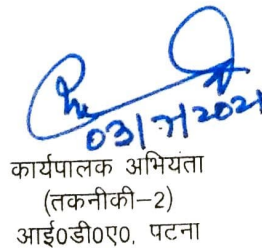 03/7/2021
कार्यपालक अभियंता
(तकनीकी-2)
आई०डी०ए०, पटना